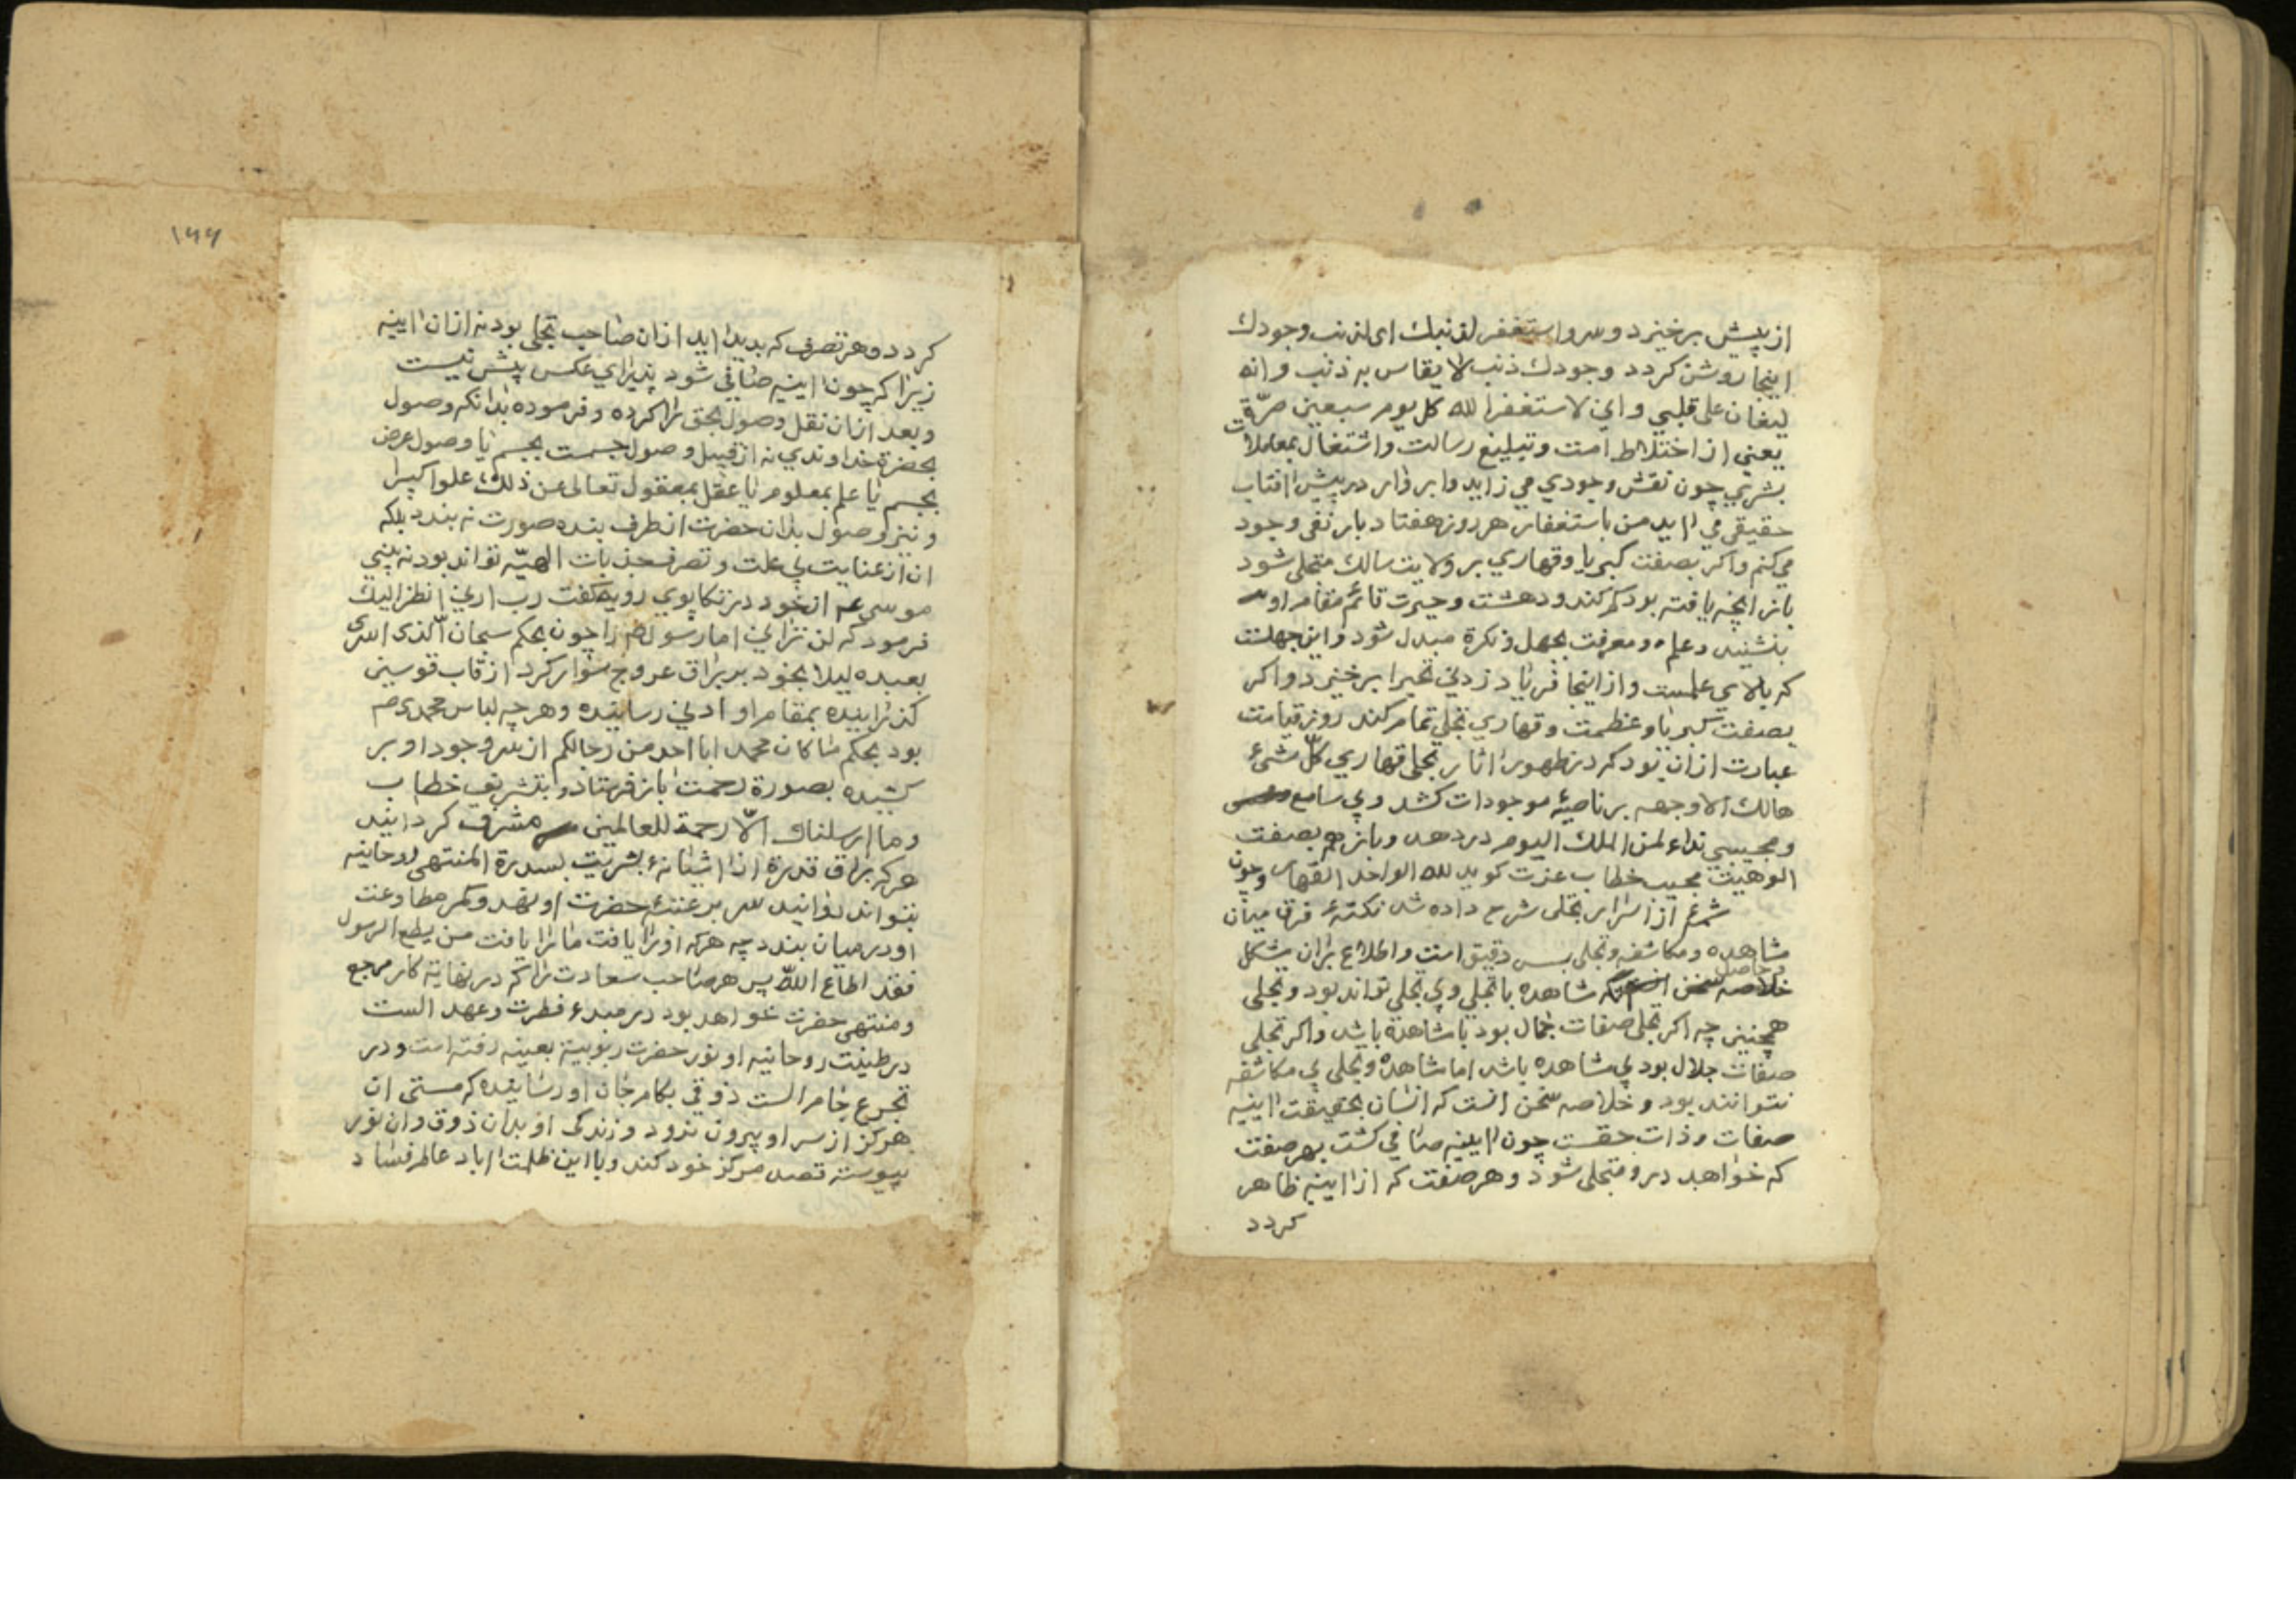 از پیش برخیزد و سر واستغفر لذنبك ای لذنب وجودك
اینجا روشن کردد وجودك ذنب لا یقاس به ذنب و انه
لیغان علی قلبی و این لاستغفر الله کل یوم سبعین مرّة
یعنی از اختلاط امت و تبلیغ رسالت و اشتغال بمعاملات
بشری چون نقش وجودی می زاید و ابر وار در پیش افتاب
حقیقی می اید من باستغفار هر روز هفتاد بار نفی وجود
می کنم و اکر بصفت کبریا و قهاری بر ولایت سالك متجلی شود
باز انچه یافته بود کم کند و دهشت و حیرت قائم مقام او
بنشیند و علم و معرفت بجهل و نکرة مبدل شود و این جهلست
که بالای علمست و از اینجا فریاد زدنی تحیرا برخیزد و اکر
بصفت کبریا و عظمت و قهاری تجلی تمام کند روز قیامت
عبارت از ان بود که در ظهور اثار تجلی قهاری کلّ شیء
هالك الا وجهه بر ناصیهٔ موجودات کشد و بی سامع
و مجیبی نداء لمن الملك الیوم در دهد و باز هم بصفت
الوهیت مجیب خطاب عزت کوید لله الواحد القهار و چون
شمهٔ از اسرار تجلی شرح داده شد نکتهٔ فرق میان
مشاهده و مکاشفه و تجلی بس دقیق است و اطلاع بران مشکل
در حاصل
خلاصه سخن انکه مشاهده با تجلی و بی تجلی تواند بود و تجلی
همچنین چه اکر تجلی صفات جمال بود با مشاهدة باشد و اکر تجلی
صفات جلال بود بی مشاهده باشد اما مشاهدة و تجلی بی مکاشفه
نتوانند بود و خلاصه سخن انست که انسان بحقیقت اینیه
صفات و ذات حقست چون ایینه صافی کشت بهر صفت
که خواهد درو متجلی شود و هر صفت که از اینیه ظاهر
کردد
۱۴۴
کردد و هر تصرف که بدید اید از ان صاحب تجلی بود نه از ان اینیه
زیرا کر چون اینیه صافی شود پذیرای عکس بیش نیست
و بعد از ان نقل وصول بحق را کرده و فرموده بدانکه وصول
بحضرة خداوندی نه از قبیل وصول جسمت بجسم یا وصول عرض
بجسم یا علم بمعلوم یا عقل بمعقول تعالی عن ذلك علوا کبیرا
و نیز وصول بدان حضرت از طرف بنده صورت نه بندد بلکه
ان از عنایت بی علت و تصرف جذبات الهیّه تواند بود نه بینی
موسی عم از خود در تکاپوی رویه کفت رب ارنی انظر الیك
فرمود که لن ترانی اما رسول صم را چون بحکم سبحان الّذی اسری
بعبده لیلا بخود بر براق عروج سوار کرد از قاب قوسین
کذرانیده بمقام او ادنی رسانیده و هر چه لباس محمدی صم
بود بحکم ما کان محمد ابا احد من رجالکم از سر وجود او بر
کشیده بصورة رحمت باز فرستاد و بتشریف خطاب
و ما ارسلناك الّا رحمة للعالمین مشرف کردانید
هر که براق قدرة از اشیانهٔ بشریت بسدرة المنتهی روحانیه
بتواند دوانید سر بر عتبهٔ حضرت او نهد و کمر مطاوعت
او در میان بندد چه هر که او را یافت ما را یافت من یطع الرسول
فقد اطاع اللّه پس هر صاحب سعادت را که در نهایة کار مرجع
و منتهی حضرت خواهد بود در مبدء فطرت و عهد الست
در طینت روحانیه او نور حضرت ربوبیة بعینه رفته است و در
تجرع جام الست ذوقی بکام جان او رسانیده که مستی ان
هرکز از سر او بیرون نرود و زندکی او بدان ذوق و ان نور
پیوسته قصد مرکز خود کند و با این ظلمت اباد عالم فساد